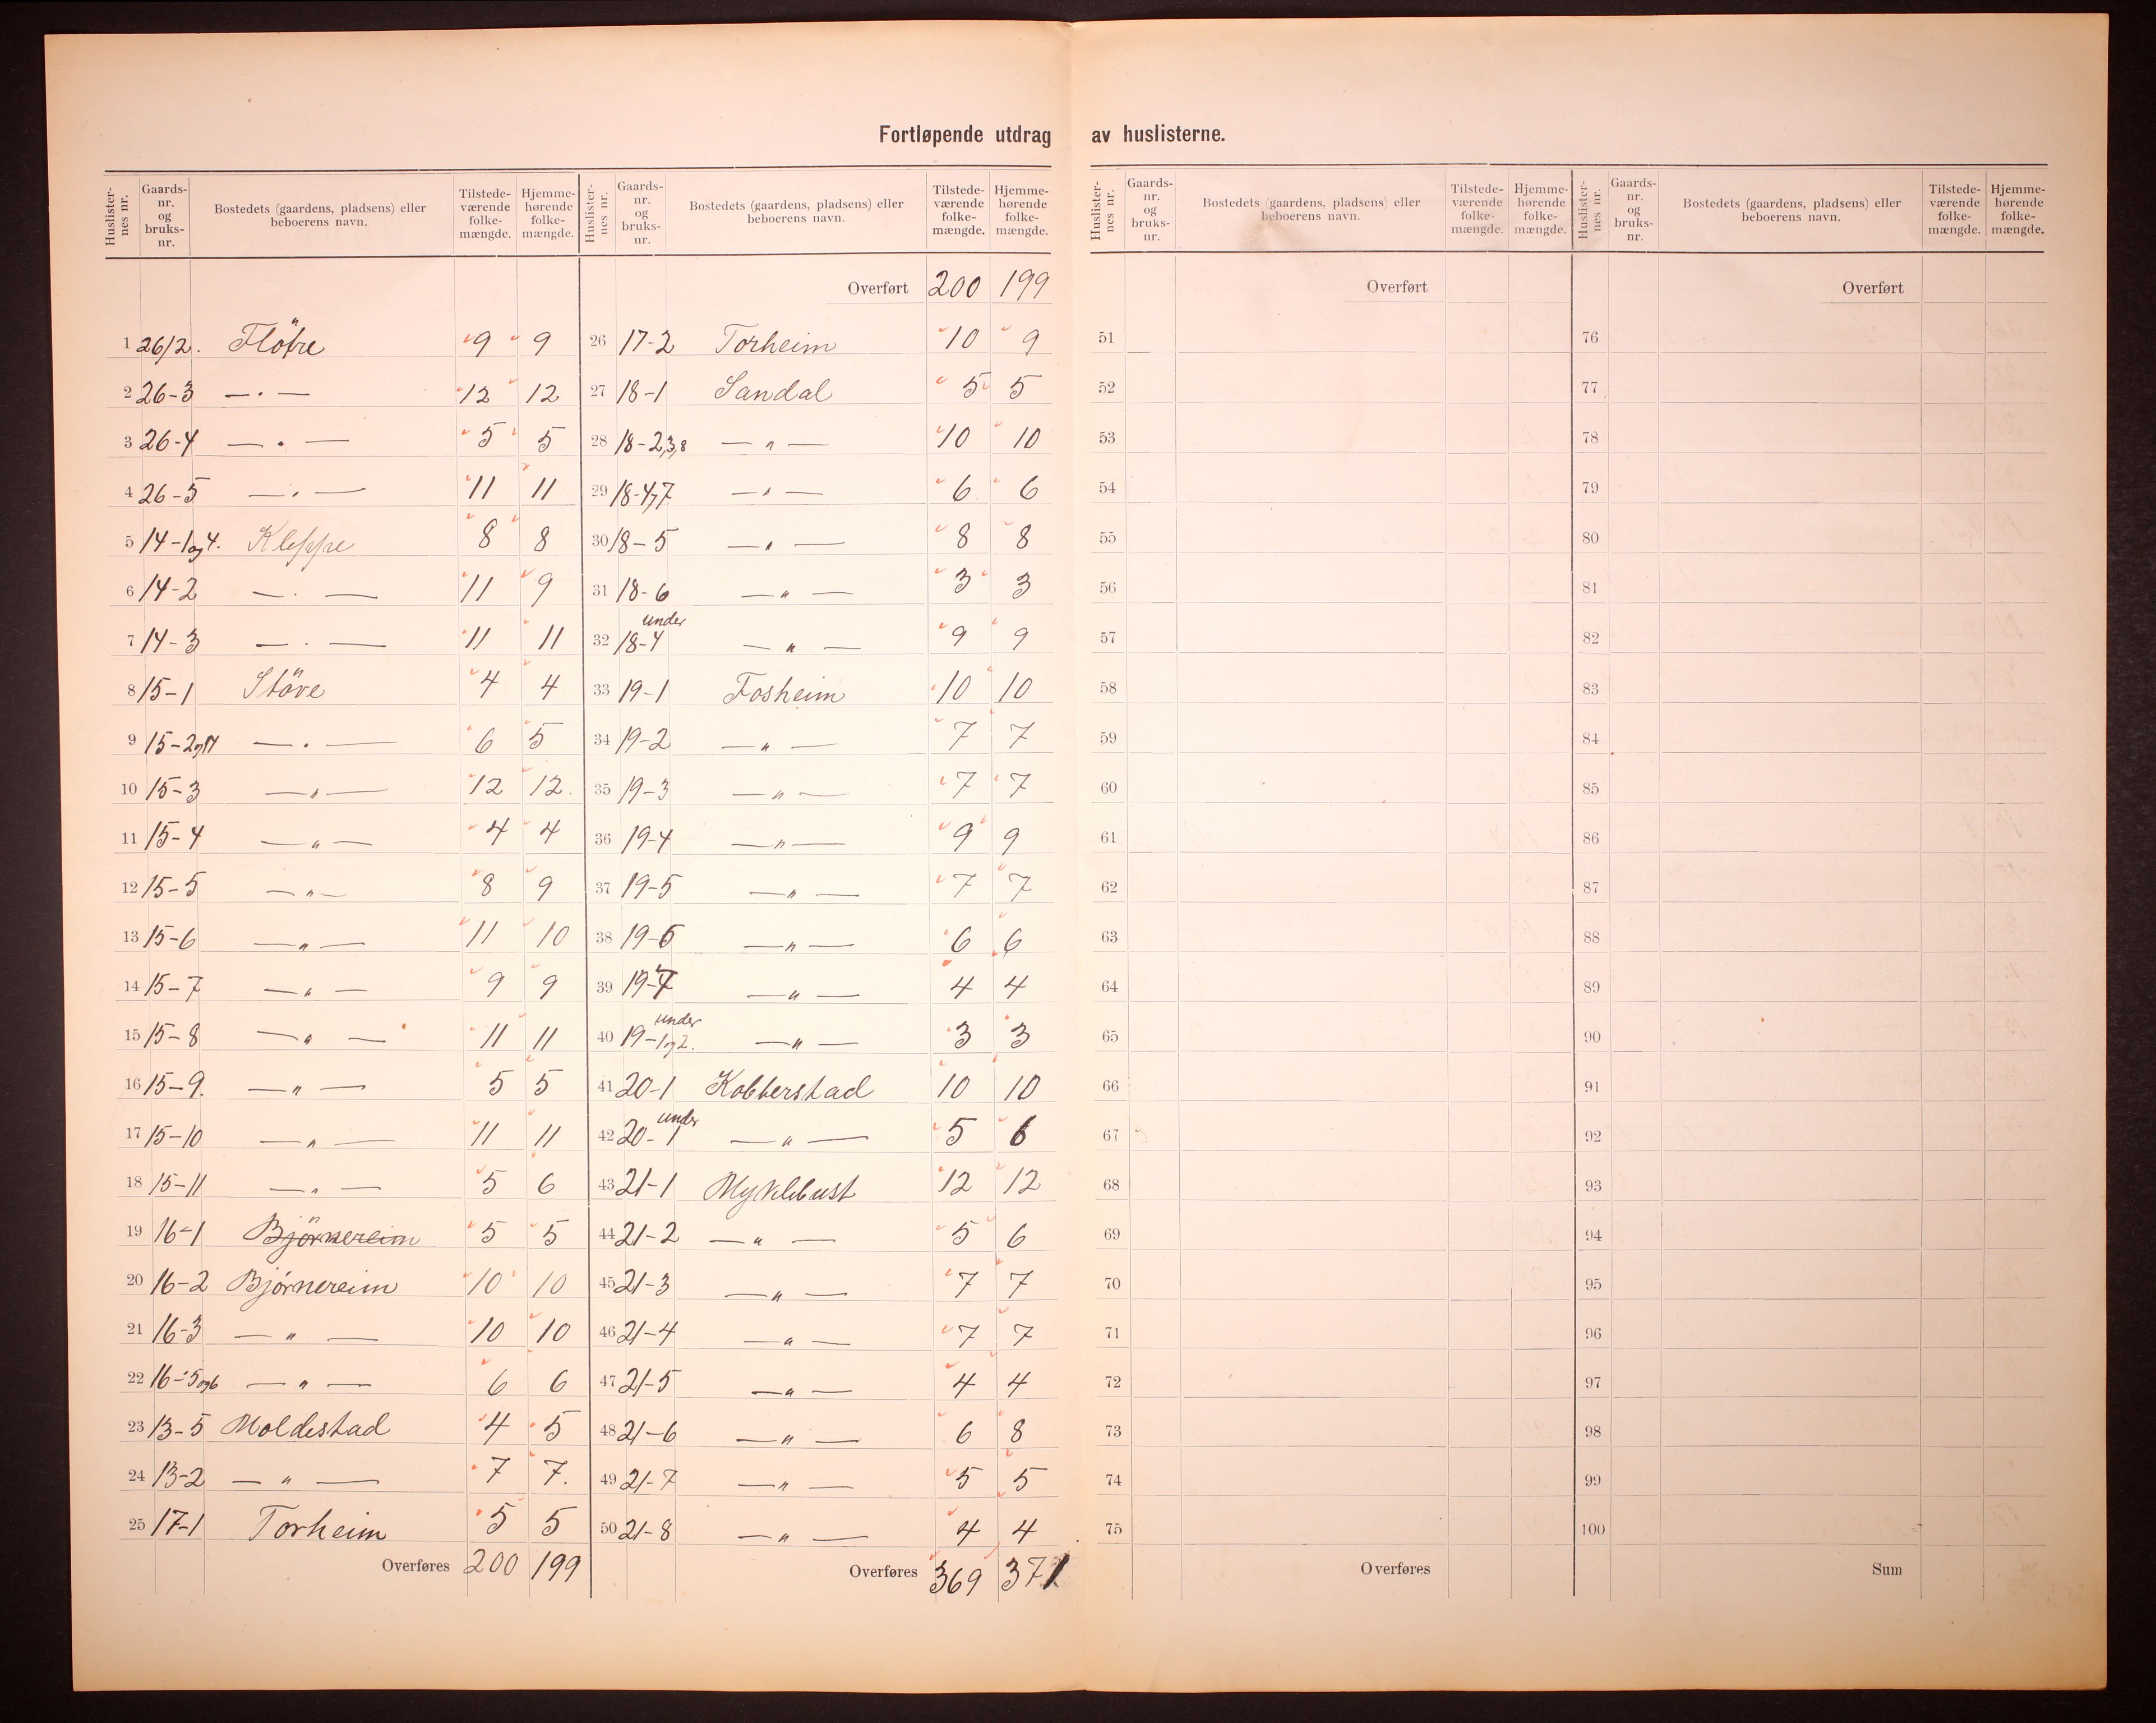 Fortløpende utdrag av huslisterne.
Huslisternes nr. Gaardsnr. og bruksnr. Bostedets (gaardens, pladsens) eller beboerens navn. Tilstedeværende folkemængde. Hjemmehørende folkemængde. Huslisternes nr. Gaardsnr. og bruksnr. Bostedets (gaardens, pladsens) eller beboerens navn. Tilstedeværende folkemængde. Hjemmehørende folkemængde.
1 26/2. Flöbre 9 9
2 26-3 — . — 12 12
3 26-4 — . — 5 5
4 26-5 — . — 11 11
5 14-1 og 4. Kleppe 8 8
6 14-2 — . — 11 9
7 14-3 — . — 11 11
8 15-1 Störe 4 4
9 15-2 og 14 — . — 6 5
10 15-3 — " — 12 12.
11 15-4 — " — 4 4
12 15-5 — " — 8 9
13 15-6 — " — 11 10
14 15-7 — " — 9 9
15 15-8 — " — 11 11
16 15-9. — " — 5 5
17 15-10 — " — 11 11
18 15-11 — " — 5 6
19 16-1 Björnereim 5 5
20 16-2 Bjørnereim 10 10
21 16-3 — " — 10 10
22 16-5 og 6 — " — 6 6
23 13-5 Moldestad 4 5
24 13-2 — " — 7 7.
25 17-1 Torheim 5 5
Overføres 200 199
Overført 200 199
26 17-2 Torheim 10 9
27 18-1 Sandal 5 5
28 18-2,3,8 — " — 10 10
29 18-4,7 — " — 6 6
30 18-5 — " — 8 8
31 18-6 — " — 3 3
32 under 18-4 — " — 9 9
33 19-1 Fosheim 10 10
34 19-2 — " — 7 7
35 19-3 — " — 7 7
36 19-4 — " — 9 9
37 19-5 — " — 7 7
38 19-6 — " — 6 6
39 19-7 — " — 4 4
40 under 19-1 og 2. — " — 3 3
41 20-1 Kobberstad 10 10
42 under 20-1 — " — 5 6
43 21-1 Myklebust 12 12
44 21-2 — " — 5 6
45 21-3 — " — 7 7
46 21-4 — " — 7 7
47 21-5 — " — 4 4
48 21-6 — " — 6 8
49 21-7 — " — 5 5
50 21-8 — " — 4 4
Overføres 369 371
Huslisternes nr. Gaardsnr. og bruksnr. Bostedets (gaardens, pladsens) eller beboerens navn. Tilstedeværende folkemængde. Hjemmehørende folkemængde. Huslisternes nr. Gaardsnr. og bruksnr. Bostedets (gaardens, pladsens) eller beboerens navn. Tilstedeværende folkemængde. Hjemmehørende folkemængde.
Overført
51
52
53
54
55
56
57
58
59
60
61
62
63
64
65
66
67
68
69
70
71
72
73
74
75
Overføres
Overført
76
77
78
79
80
81
82
83
84
85
86
87
88
89
90
91
92
93
94
95
96
97
98
99
100
Sum